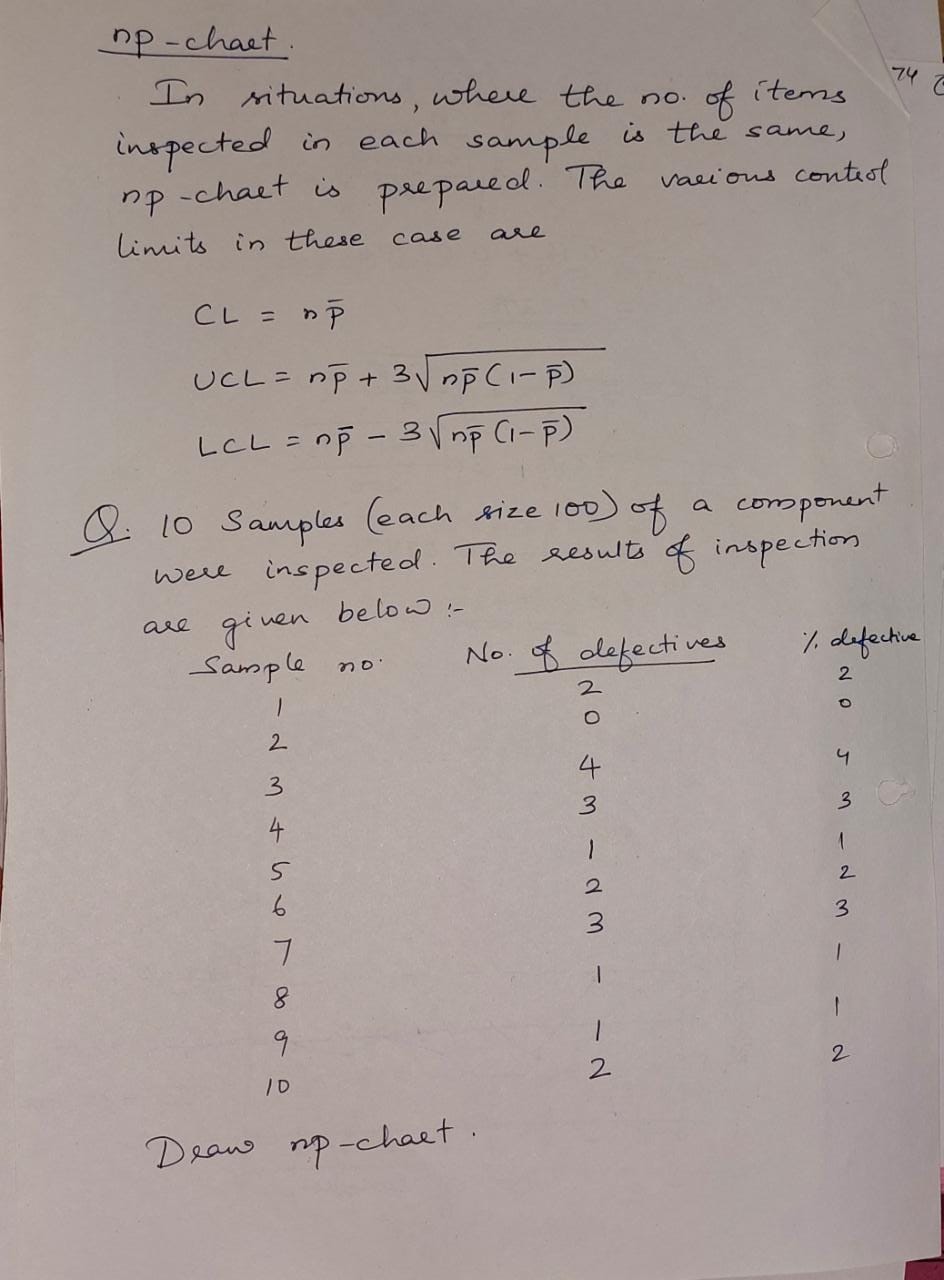 74
np-chart.
In situations, where the no. of items
inspected in each sample is the same,
np-chart is prepared. The various control
limits in these case are
CL = np̄
UCL = np̄ + 3√np̄(1-p̄)
LCL = np̄ - 3√np̄(1-p̄)
Q. 10 Samples (each size 100) of a component
were inspected. The results of inspection
are given below :-
Sample no. No. of defectives % defective
1 2 2
2 0 0
3 4 4
4 3 3
5 1 1
6 2 2
7 3 3
8 1 1
9 1 1
10 2 2
Draw np-chart.